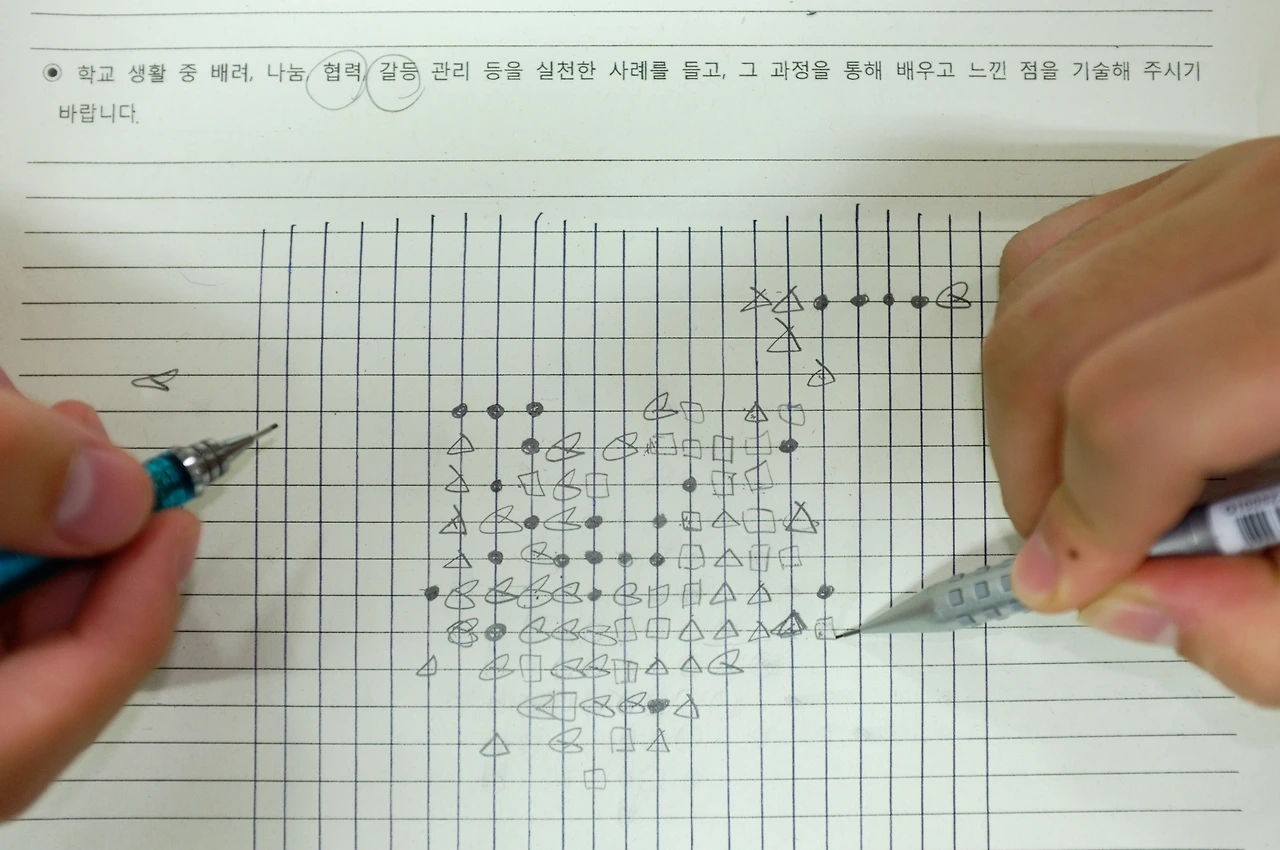 학교 생활 중 배려, 나눔, 협력, 갈등 관리 등을 실천한 사례를 들고, 그 과정을 통해 배우고 느낀 점을 기술해 주시기
바랍니다.